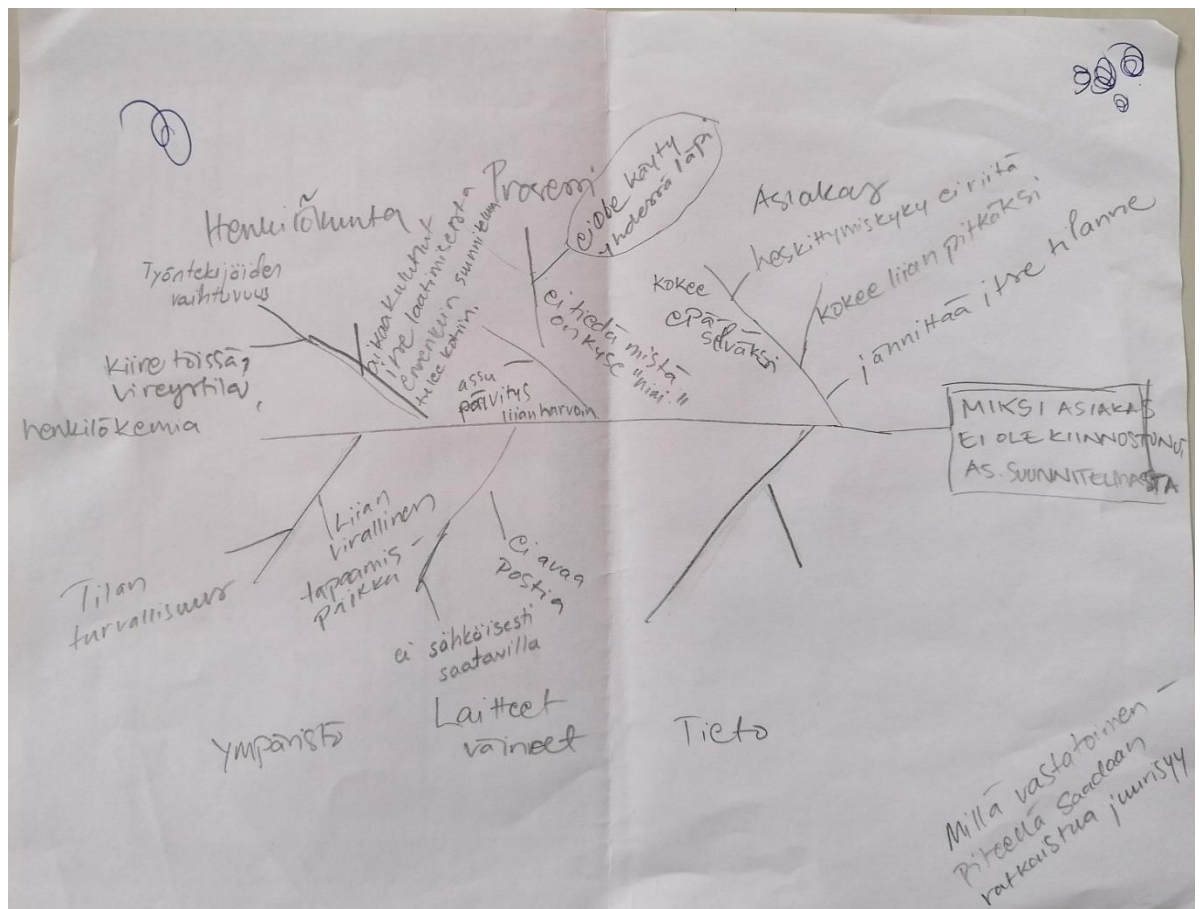 Henkilökunta
Työntekijöiden
vaihtuvuus
Kiire töissä,
vireystila,
henkilökemia
aikaa kulunut
itse laatimisesta
ennenkuin suunnitelma
tulee kotiin.
Prosessi
ei ole käyty
yhdessä läpi
ei tiedä mistä
on kyse "nimi."
assu
päivitys
liian harvoin
Asiakas
keskittymiskyky ei riitä
kokee liian pitkäksi
jännittää itse tilanne
kokee
epä
selväksi
MIKSI ASIAKAS
EI OLE KIINNOSTUNUT
AS. SUUNNITELMASTA
Tilan
turvallisuus
Liian
virallinen
tapaamis-
paikka
Ympäristö
ei avaa
postia
ei sähköisesti
saatavilla
Laitteet
välineet
Tieto
Millä vastatoimen
piteellä saadaan
ratkaistua juurisyy